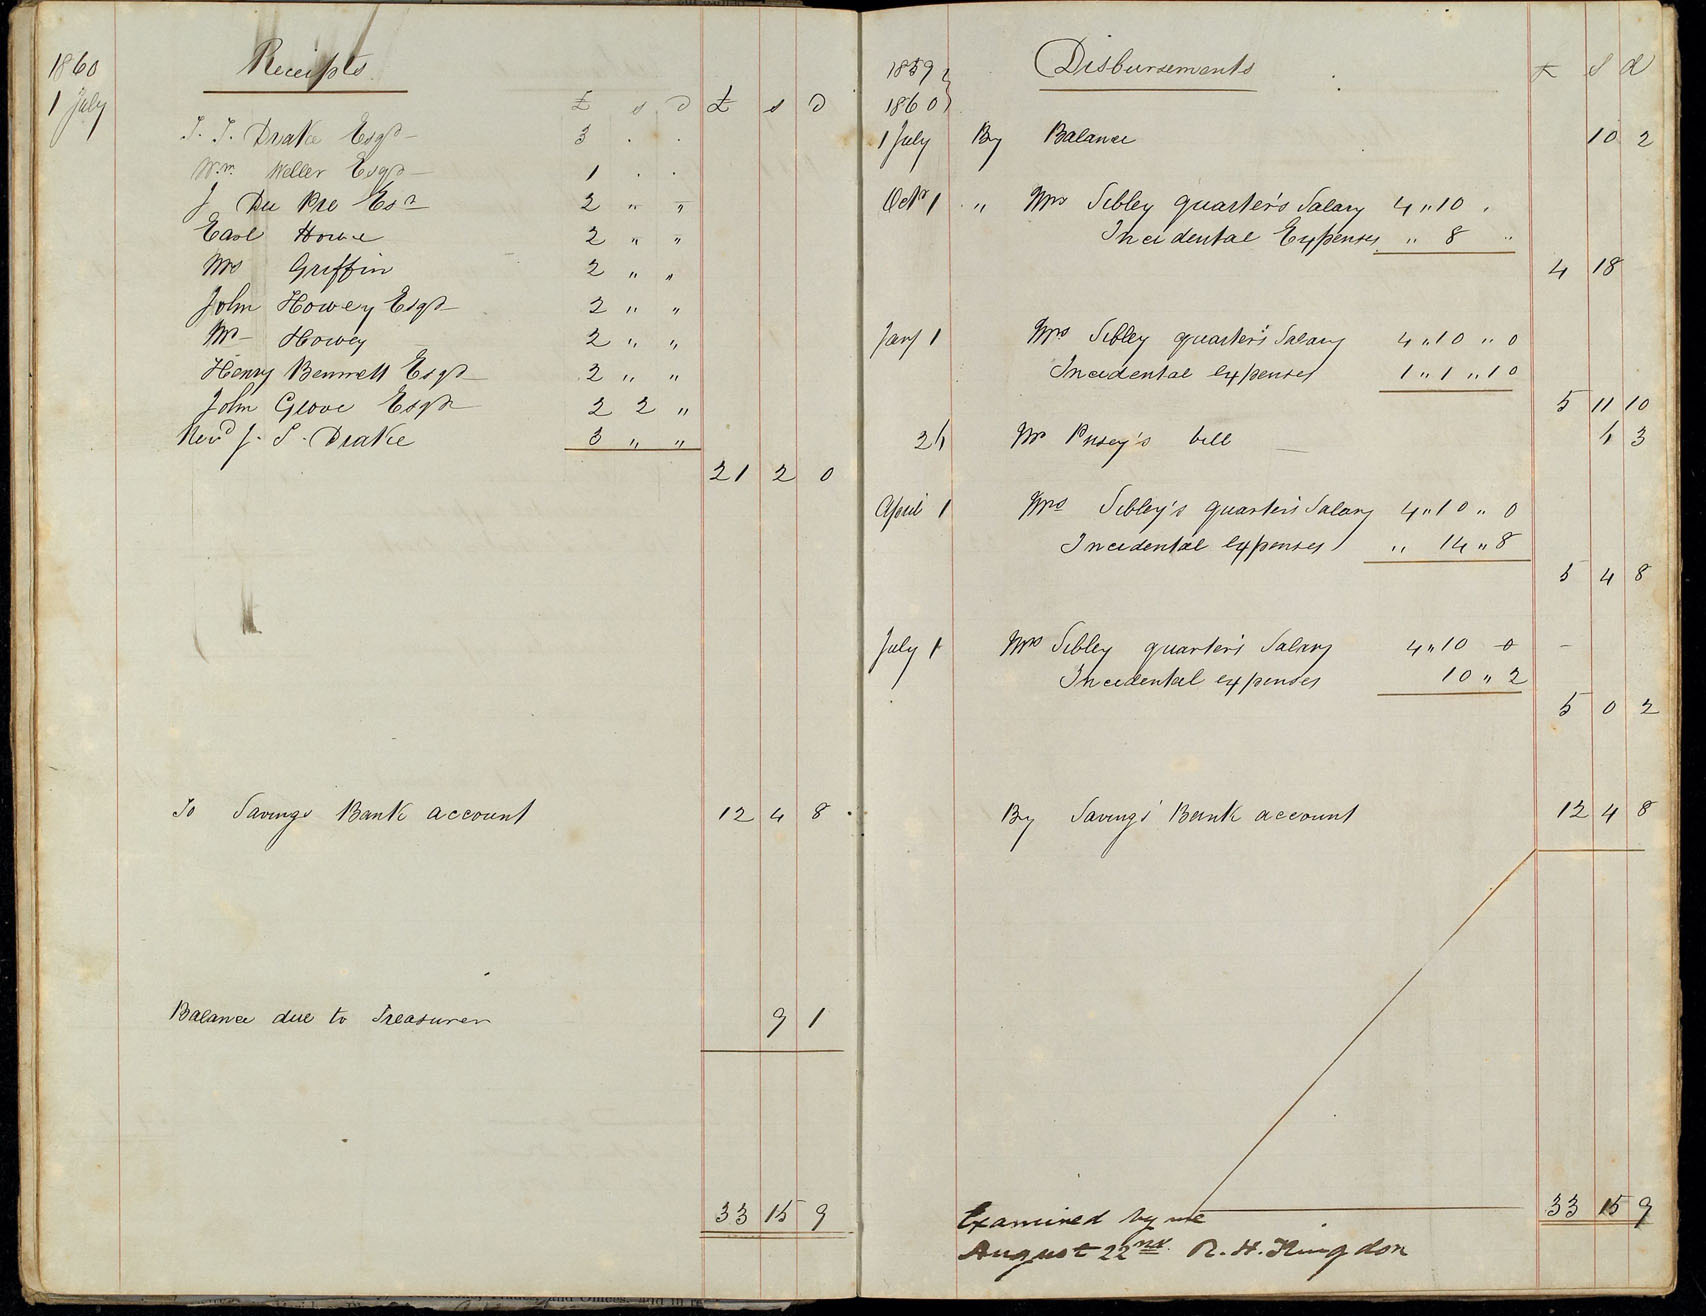 1860
Receipts
1 July
£ s D £ s D
T. T. Drake Esqr 3 . .
Wm. Weller Esqr 1 . .
J Du Pre Esr 2 " "
Earl Howe 2 " "
Mrs Griffin 2 " "
John Howey Esqr 2 " "
Mr Howey 2 " "
Henry Bennett Esqr 2 " "
John Glove Esqr 2 2 "
Revd J. S. Drake 3 " "
21 2 0
To Savings Bank account 12 4 8
Balance due to Treasurer 9 1
33 15 9
1859
Disbursements
£ s d
1860
1 July By Balance 10 2
Octr 1 " Mrs Sibley quarter's Salary 4 " 10 .
Incidental Expenses " 8 "
4 18
Jany 1 Mrs Sibley quarter's Salary 4 " 10 " 0
Incidental expenses 1 " 1 " 10
5 11 10
Mr Pusey's bill 3
April 1 Mrs Sibley's quarter's Salary 4 " 10 " 0
Incidental expenses " 14 " 8
5 4 8
July 1 Mrs Sibley quarter's Salary 4 " 10 0
Incidental expenses 10 " 2
5 0 2
By Savings' Bank account 12 4 8
33 15 9
Examined by me
August 22nd. R. H. Kingdon